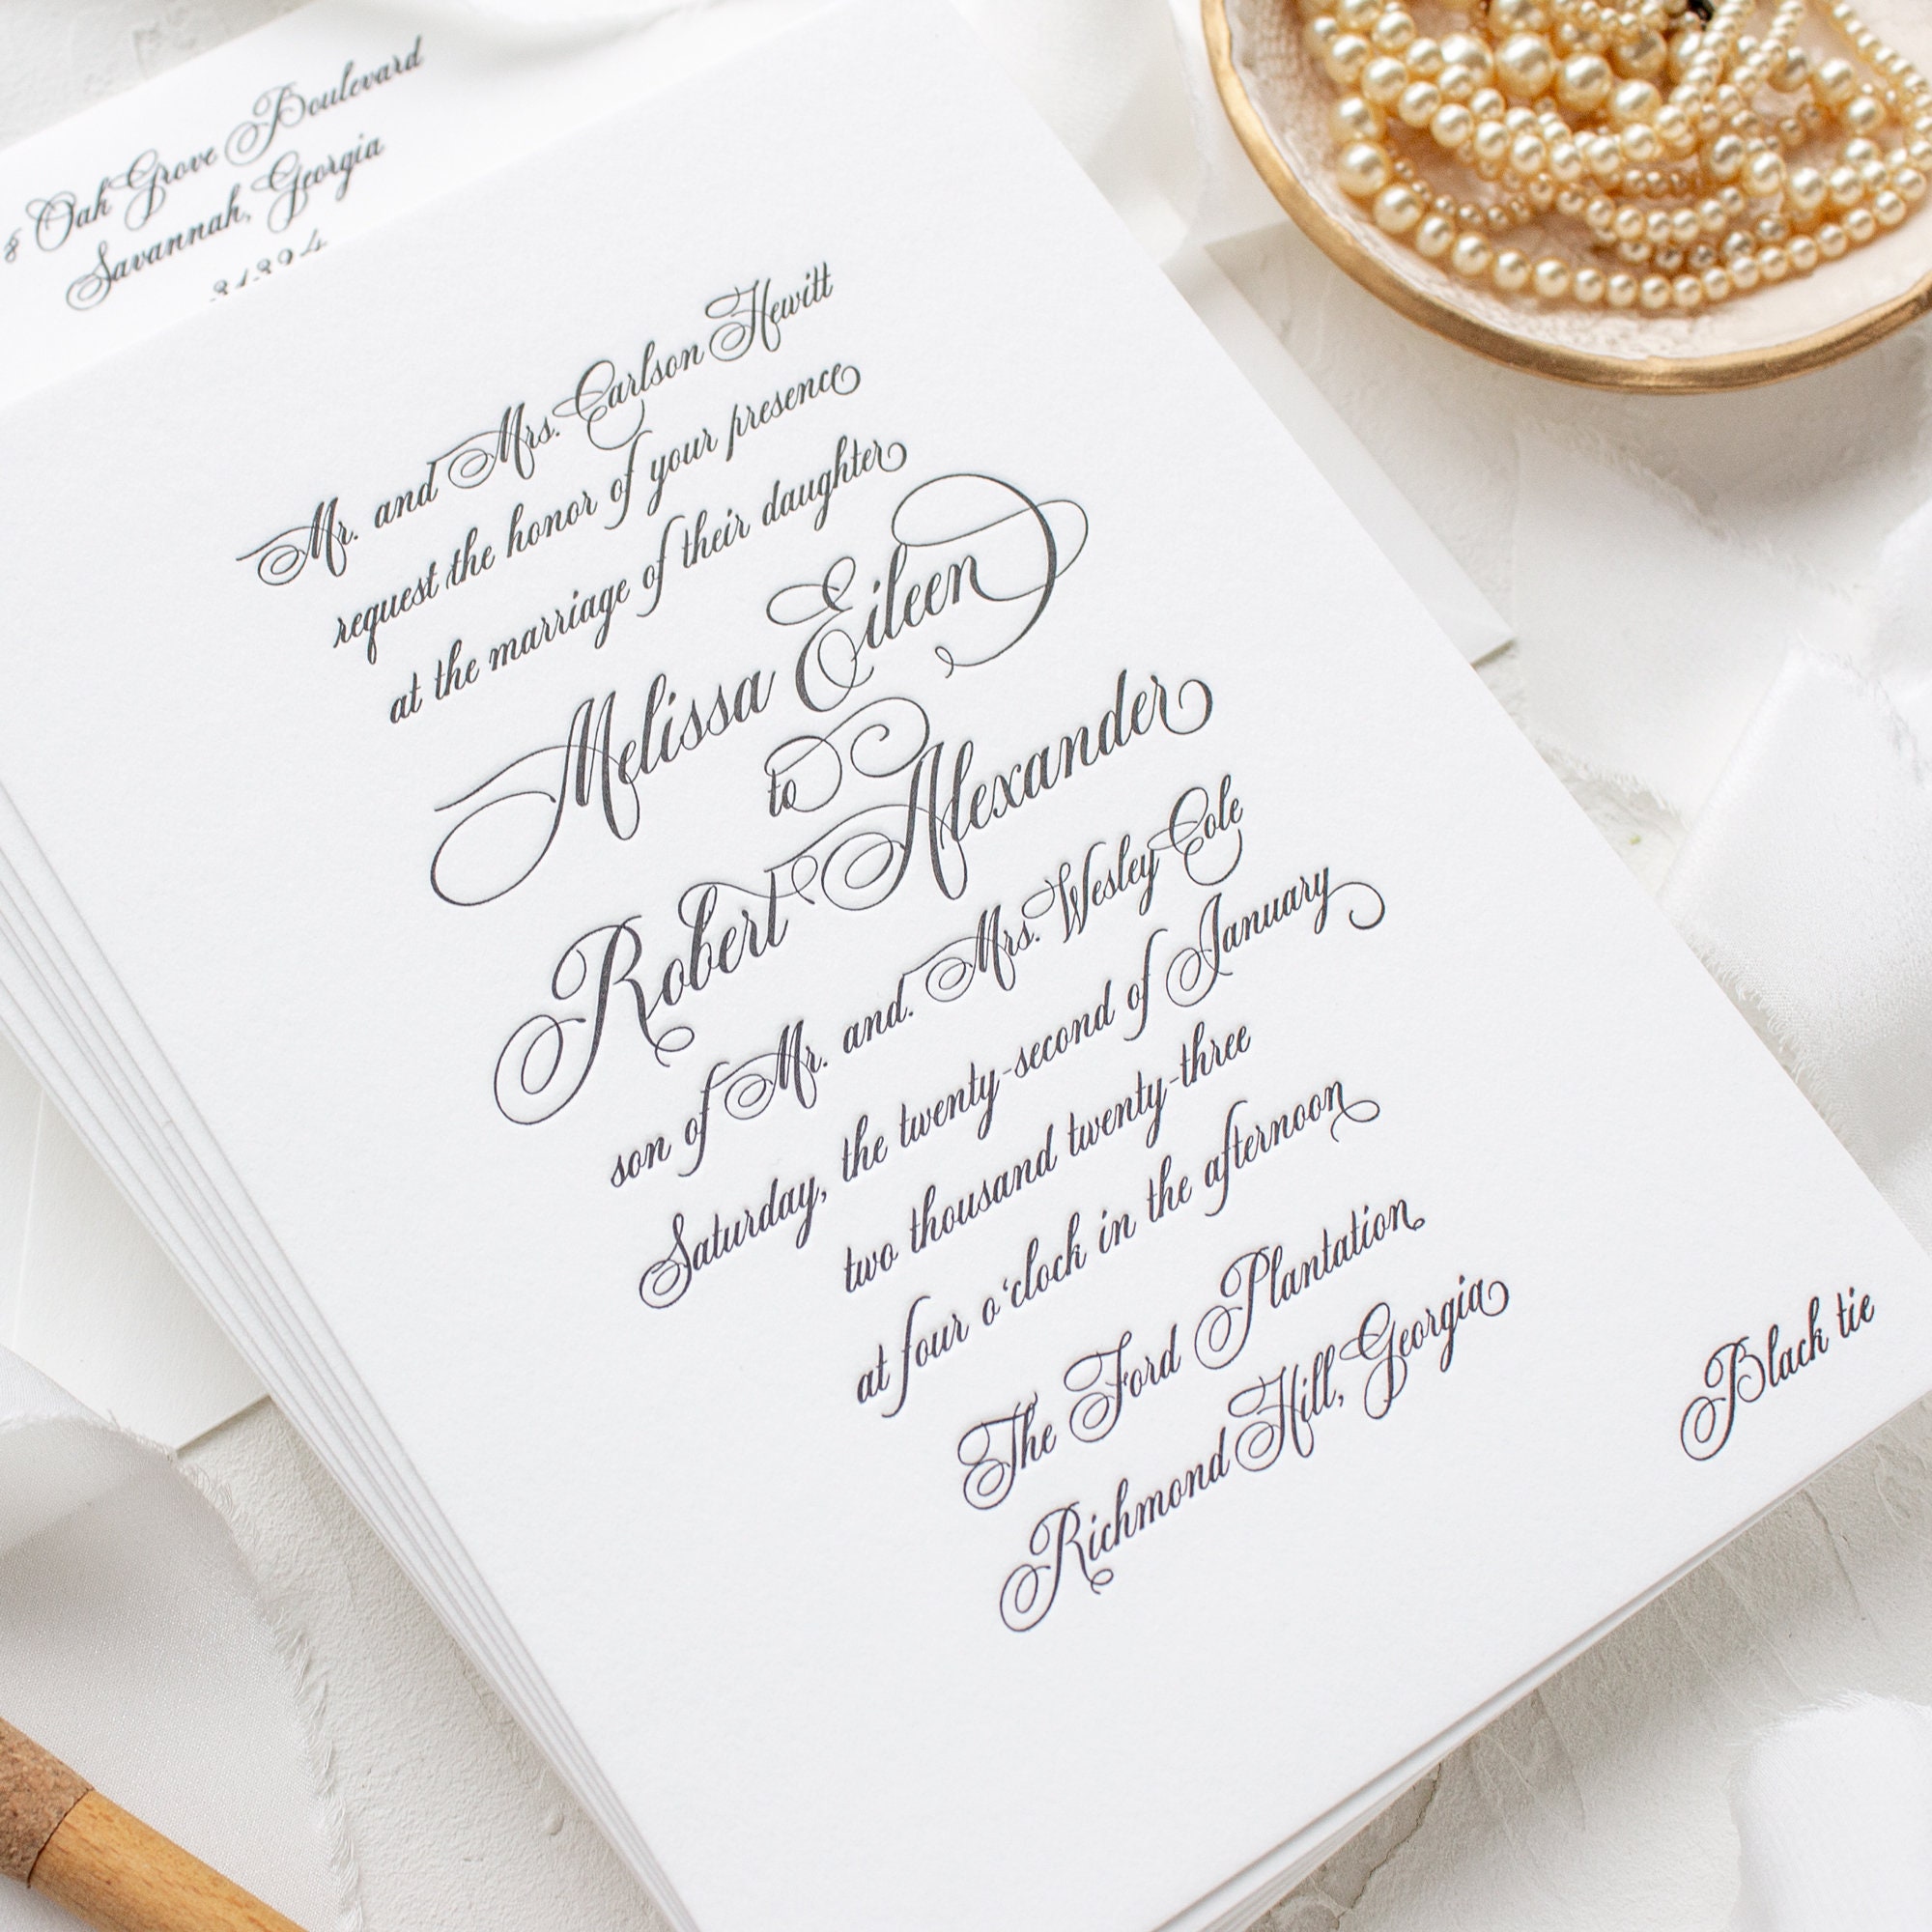 Oak Grove Boulevard
Savannah, Georgia
Mr. and Mrs. Carlson Hewitt
request the honor of your presence
at the marriage of their daughter
Melissa Eileen
to
Robert Alexander
son of Mr. and. Mrs. Wesley Cole
Saturday, the twenty-second of January
two thousand twenty-three
at four o'clock in the afternoon
The Ford Plantation
Richmond Hill, Georgia
Black tie